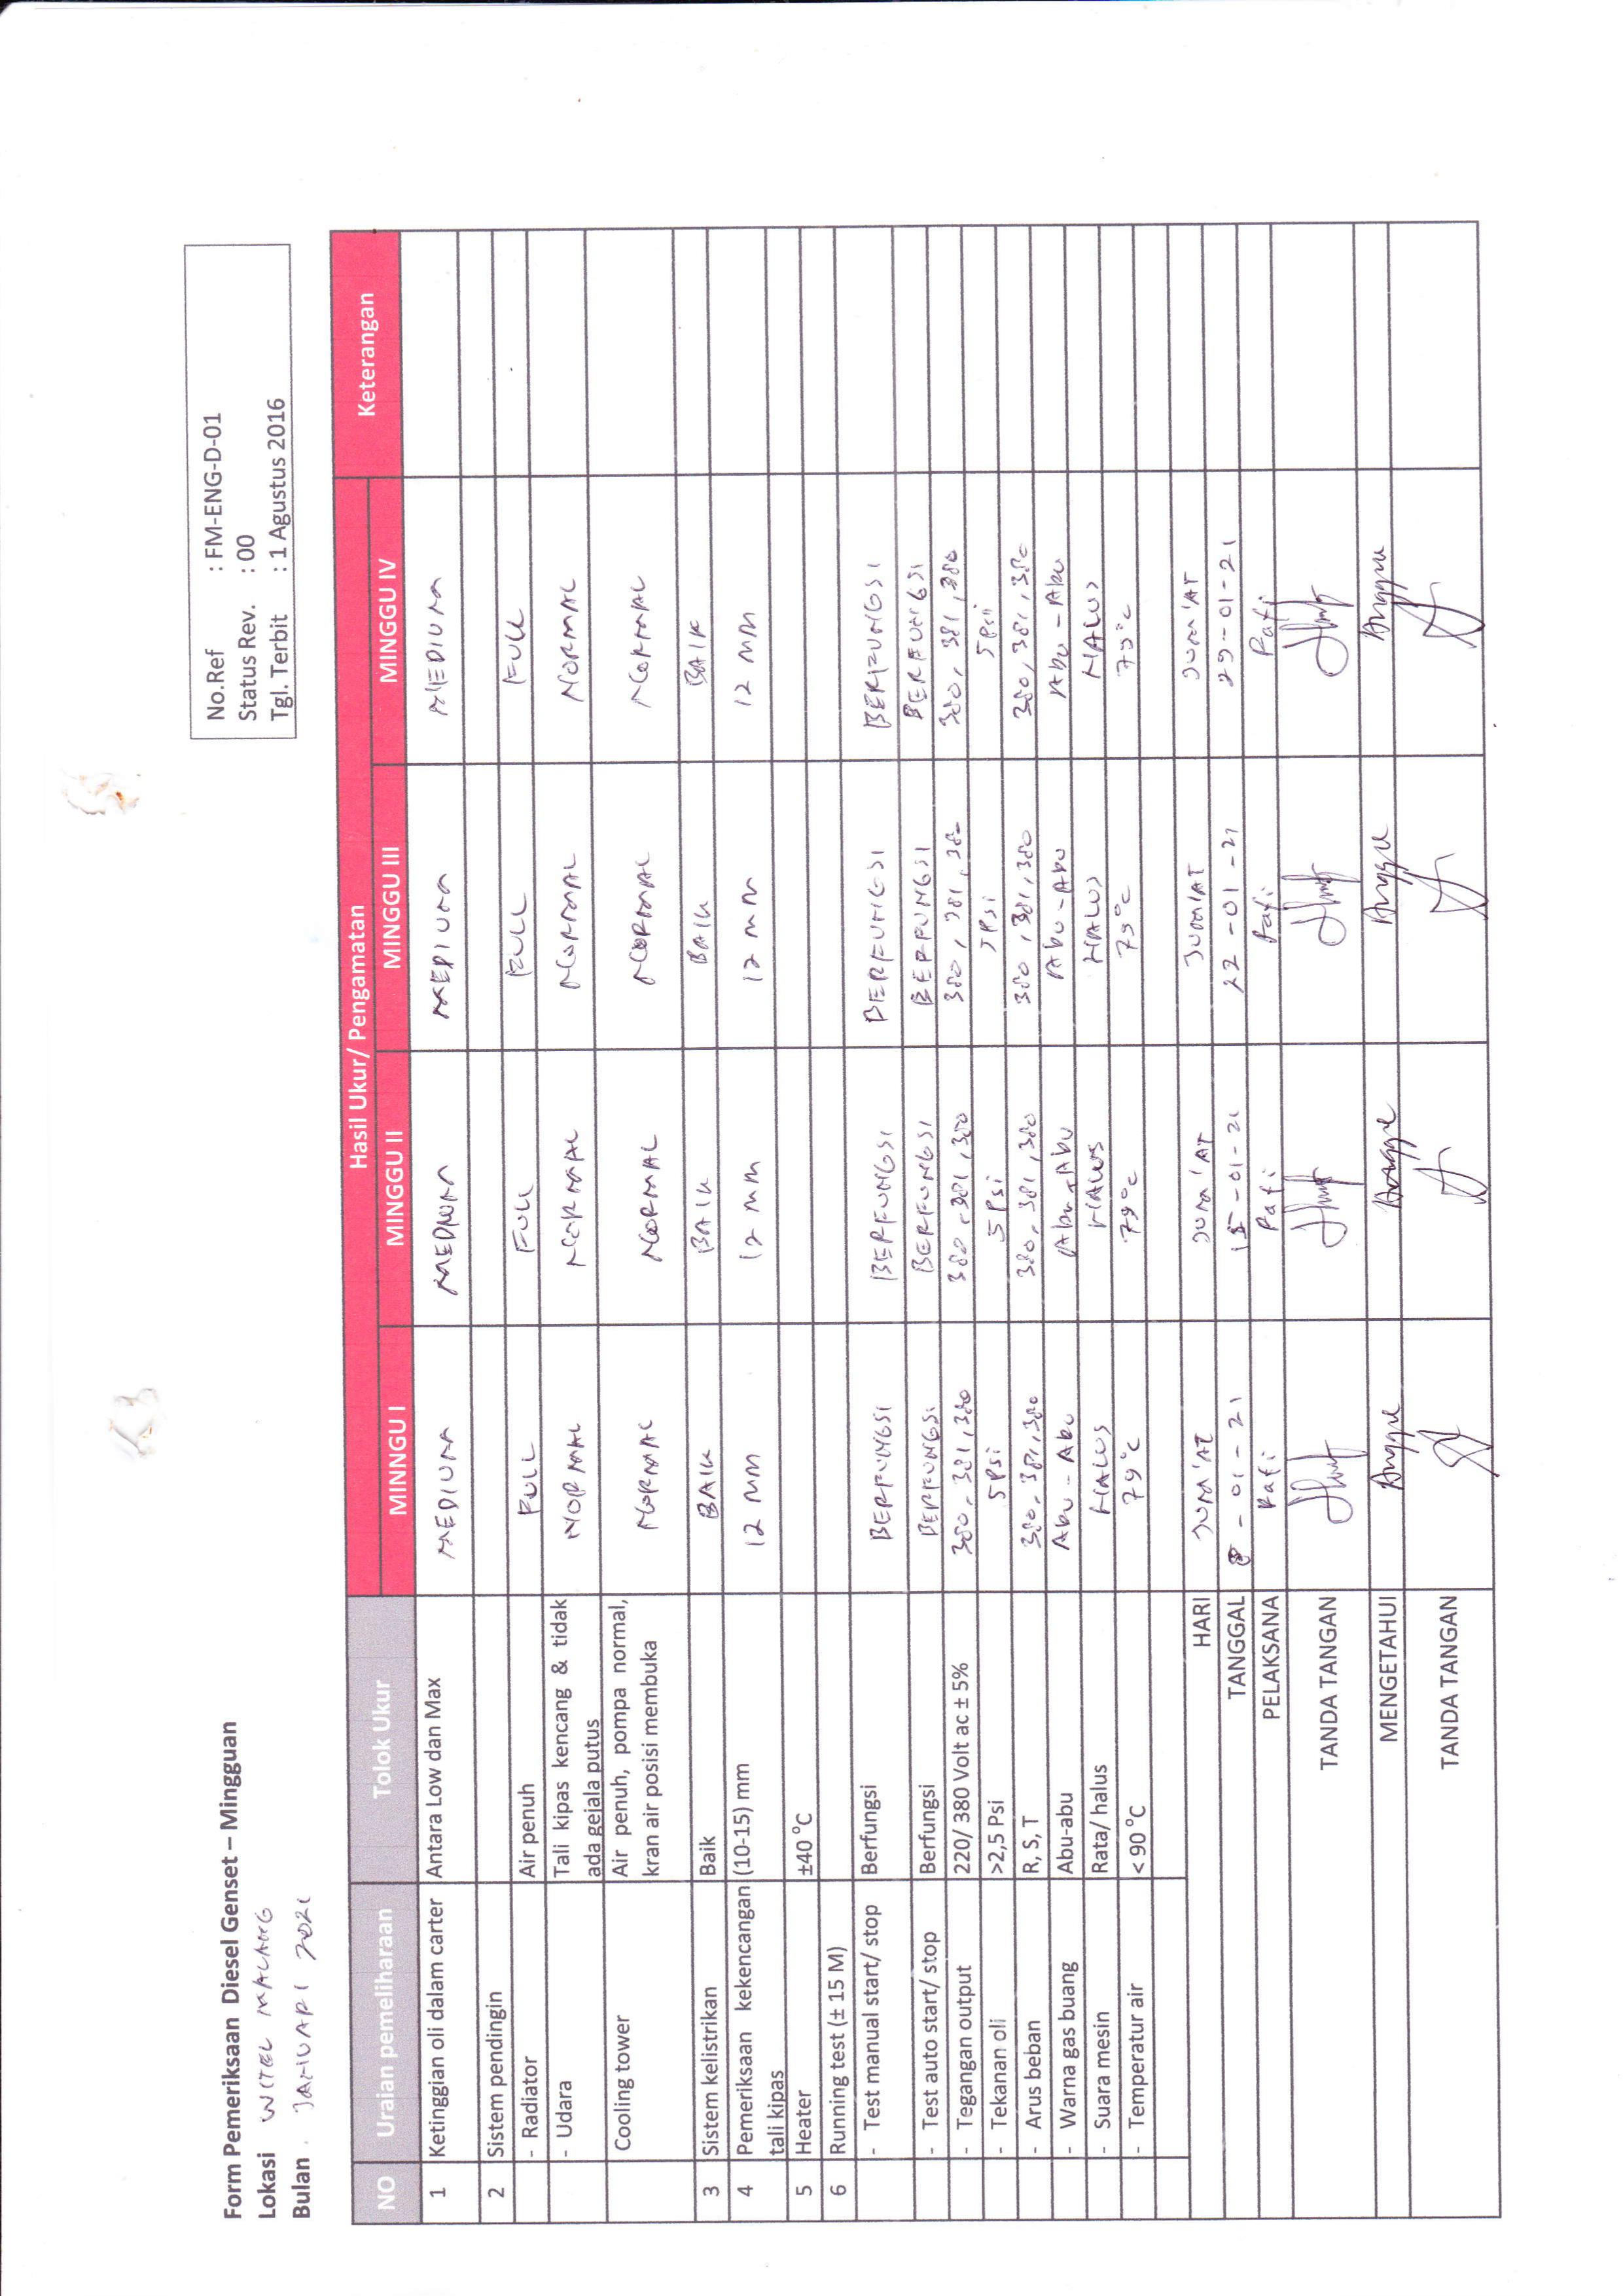 Form Pemeriksaan Diesel Genset – Mingguan
Lokasi WITEL MALANG
Bulan JANUARI 2021
No.Ref : FM-ENG-D-01
Status Rev. : 00
Tgl. Terbit : 1 Agustus 2016
NO Uraian pemeliharaan Tolok Ukur Hasil Ukur/ Pengamatan Keterangan
MINNGU I MINGGU II MINGGU III MINGGU IV
1 Ketinggian oli dalam carter Antara Low dan Max MEDIUM MEDIUM MEDIUM MEDIUM
2 Sistem pendingin
- Radiator Air penuh FULL FULL FULL FULL
- Udara Tali kipas kencang & tidak
ada gejala putus NORMAL NORMAL NORMAL NORMAL
Cooling tower Air penuh, pompa normal,
kran air posisi membuka NORMAL NORMAL NORMAL NORMAL
3 Sistem kelistrikan Baik BAIK BAIK BAIK BAIK
4 Pemeriksaan kekencangan (10-15) mm 12 MM 12 MM 12 MM 12 MM
tali kipas
5 Heater ±40 °C
6 Running test (± 15 M)
- Test manual start/ stop Berfungsi BERFUNGSI BERFUNGSI BERFUNGSI BERFUNGSI
- Test auto start/ stop Berfungsi BERFUNGSI BERFUNGSI BERFUNGSI BERFUNGSI
- Tegangan output 220/ 380 Volt ac ± 5% 380, 381, 380 380, 381, 380 380, 381, 380 380, 381, 380
- Tekanan oli >2,5 Psi 5 Psi 5 Psi 5 Psi 5 Psi
- Arus beban R, S, T 380, 381, 380 380, 381, 380 380, 381, 380 380, 381, 380
- Warna gas buang Abu-abu Abu - Abu Abu - Abu Abu - Abu Abu - Abu
- Suara mesin Rata/ halus HALUS HALUS HALUS HALUS
- Temperatur air < 90 °C 79°C 79°C 79°C 79°C
HARI JUM'AT JUM'AT JUM'AT JUM'AT
TANGGAL 8 - 01 - 21 15 - 01 - 21 22 - 01 - 21 29 - 01 - 21
PELAKSANA Rafi Rafi Rafi Rafi
TANDA TANGAN
MENGETAHUI Anggre Anggre Anggre Anggre
TANDA TANGAN